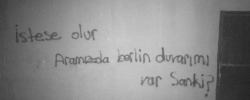 istese olur
Aramızda berlin duvarımı
var Sanki?